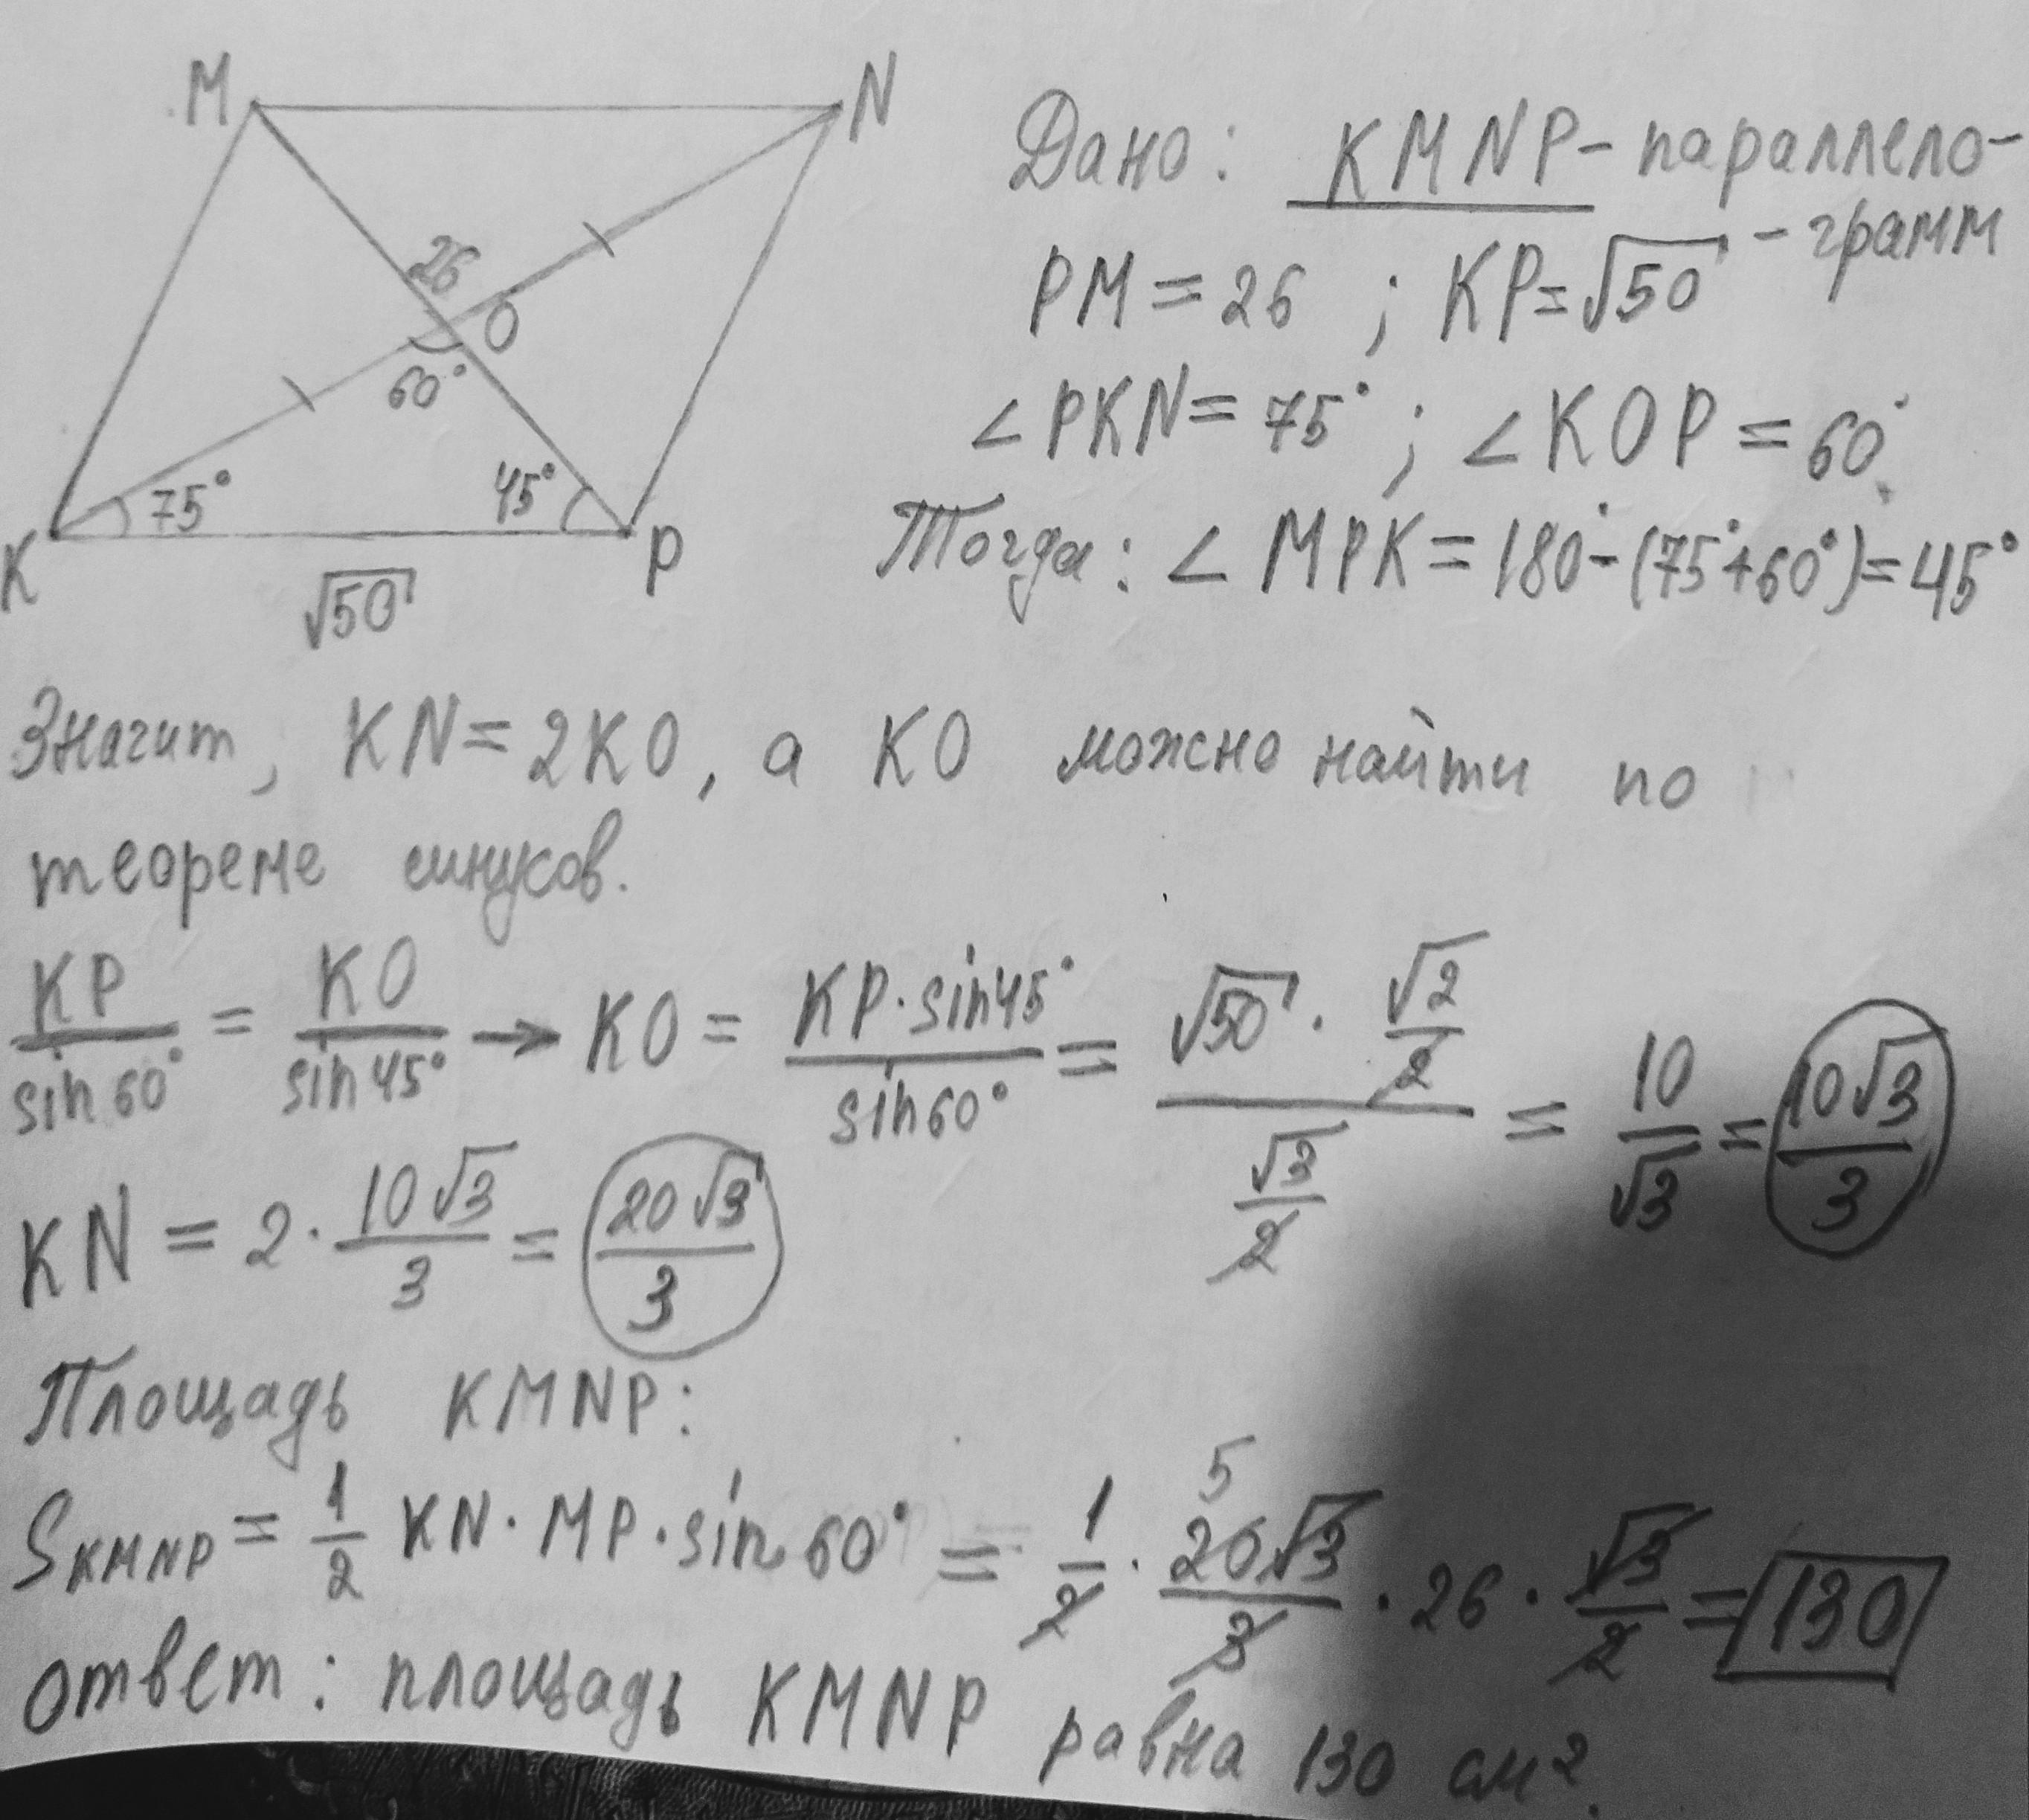 M
N
26
O
60°
75°
45°
K
P
√50
Дано: KMNP - параллело-
- грамм
PM = 26 ; KP = √50
∠PKN = 75° ; ∠KOP = 60°
Тогда: ∠MPK = 180° - (75° + 60°) = 45°
Значит, KN = 2KO, а KO можно найти по
теореме синусов.
KP/sin60° = KO/sin45° → KO = KP·sin45°/sin60° = (√50 · √2/2)/(√3/2) = 10/√3 = 10√3/3
KN = 2 · 10√3/3 = 20√3/3
Площадь KMNP:
S KMNP = 1/2 KN · MP · sin 60° = 1/2 · 20√3/3 · 26 · √3/2 = 130
5
ответ: площадь KMNP равна 130 см².